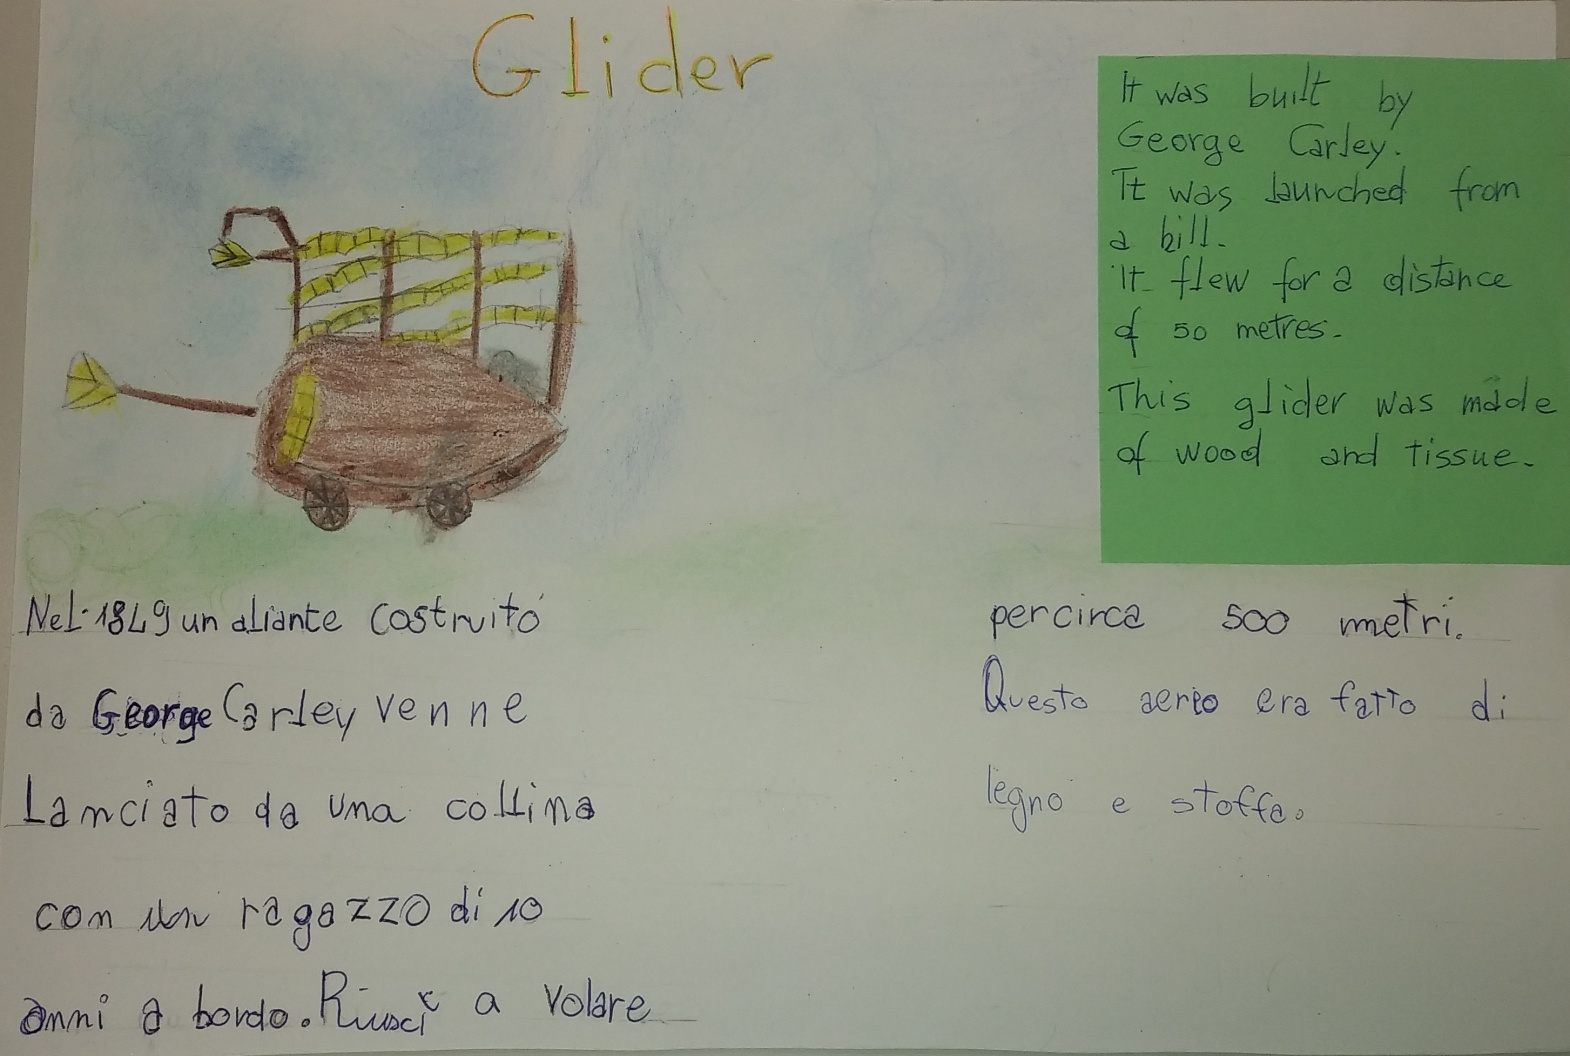 Glider
It was built by
George Carley.
It was launched from
a hill.
It flew for a distance
of 50 metres.
This glider was made
of wood and tissue.
Nel 1849 un aliante costruito
da George Carley venne
Lanciato da una collina
con un ragazzo di 10
anni a bordo. Riuscì a volare
per circa 500 metri.
Questo aereo era fatto di
legno e stoffa.